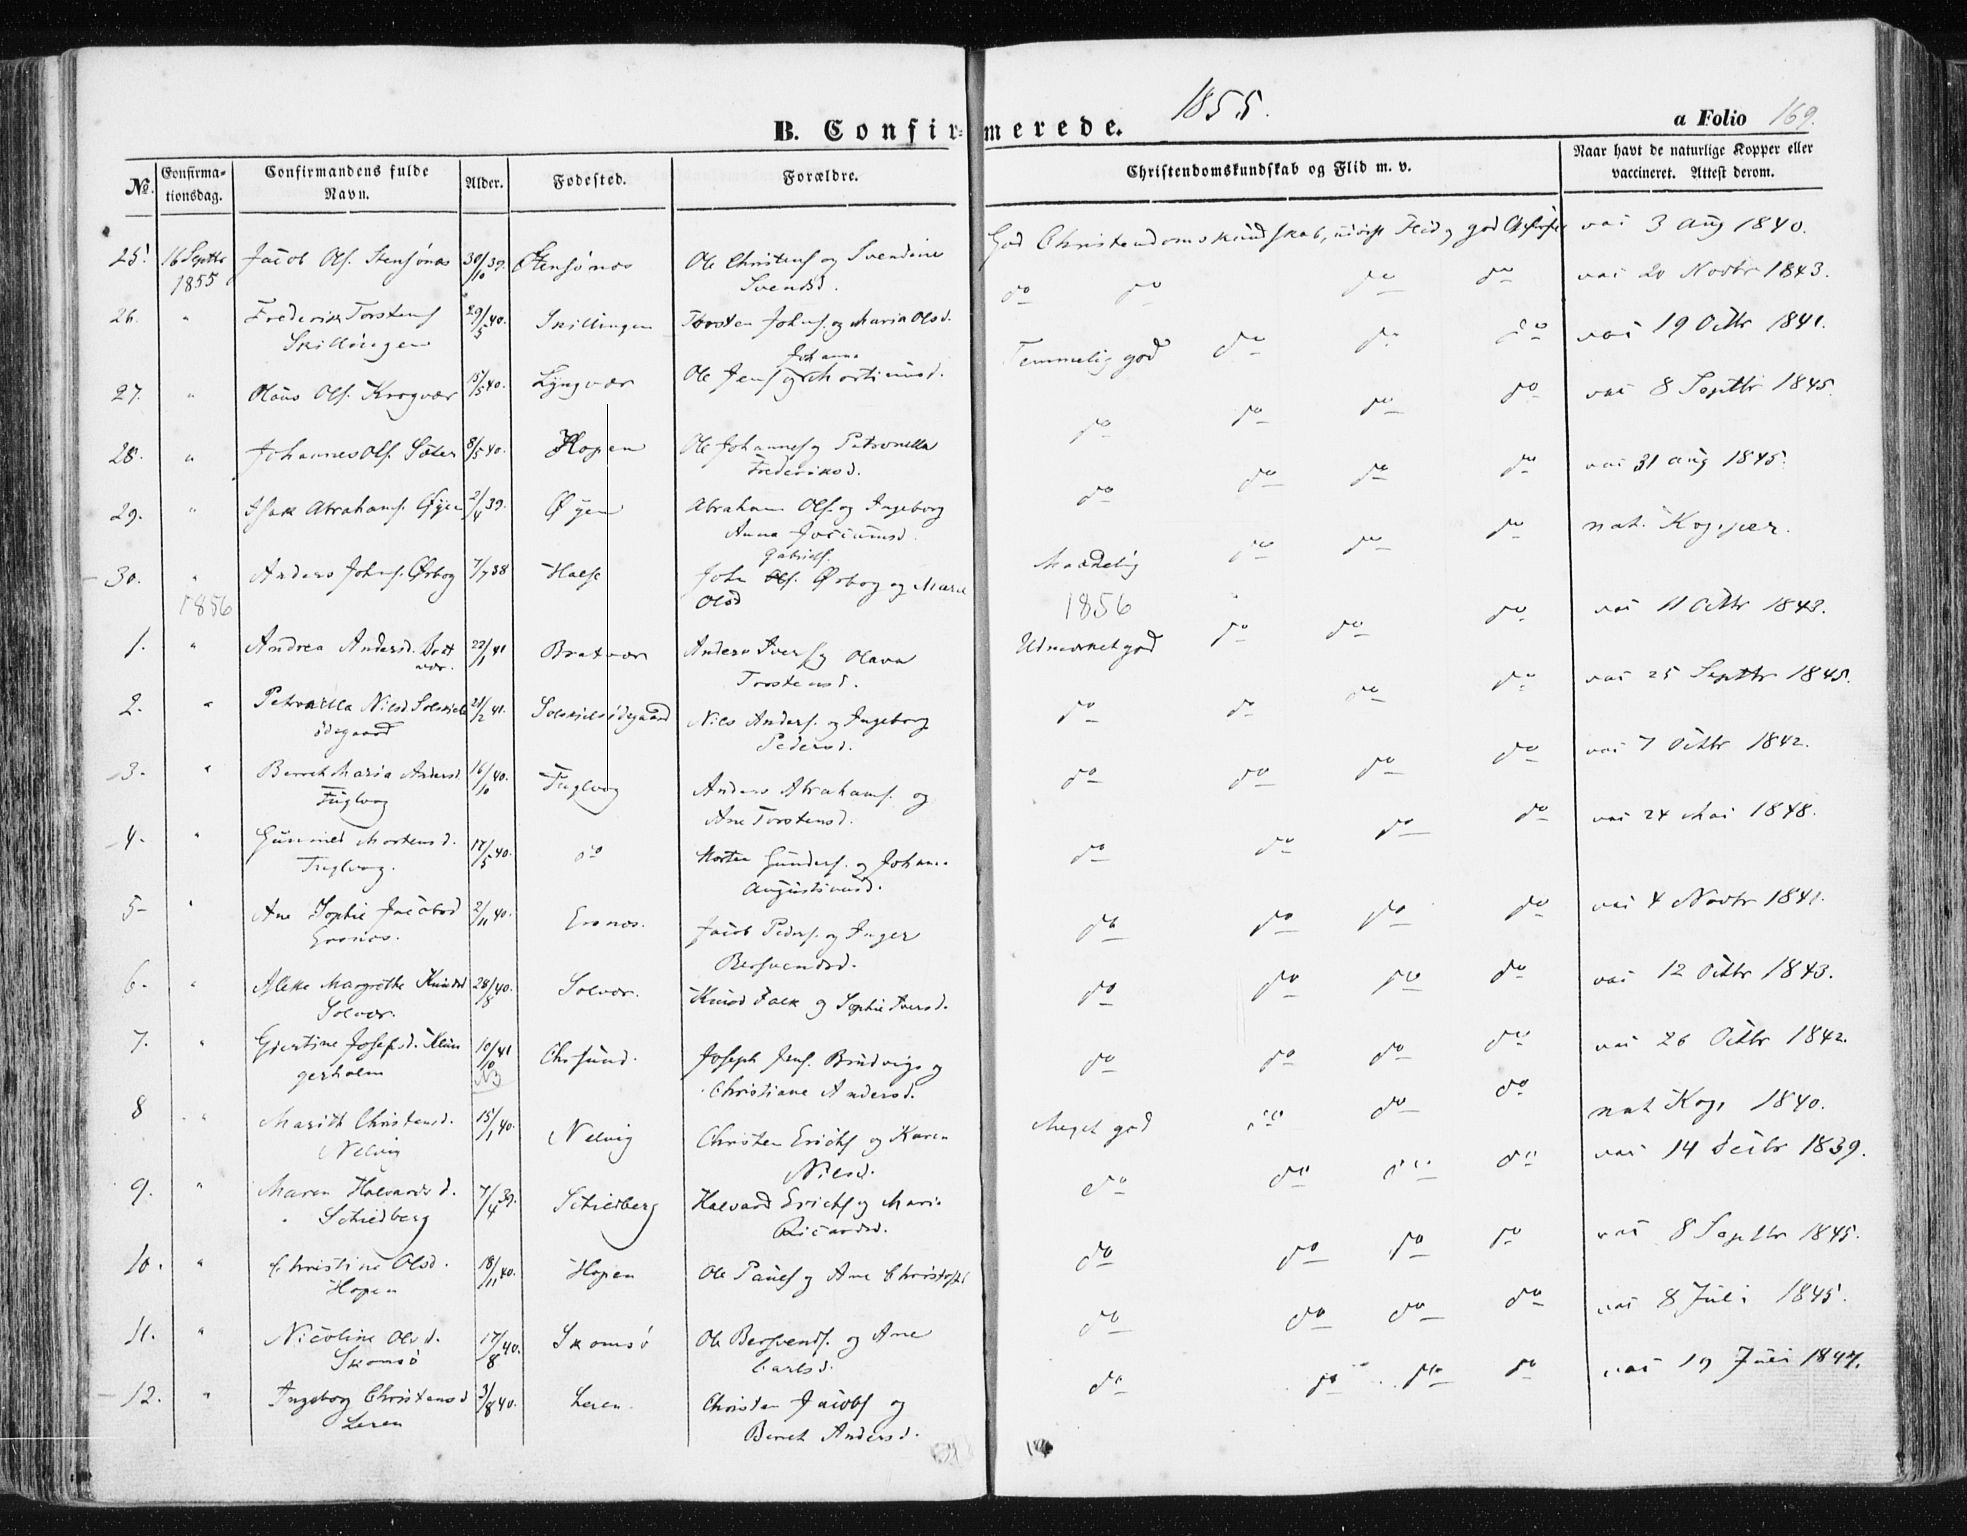 1855.
B. Confirmerede.
a Folio 169.
No. Confirmationsdag. Confirmandens fulde Navn. Alder. Fødested. Forældre. Christendomskundskab og Flid m. v. Naar havt de naturlige Kopper eller vaccineret. Attest derom.
25. 16 Septbr 1855 Jacob Ols. Stensønæs 30/10 39. Stensønæs Ole Christens og Svendine Svendsd. God Christendomskundskab, Flid og god vac 3 Aug 1840.
26. " Frederik Torstens Skillingen 29/5 40. Skillingen Torsten Johns. og Maria Olsd. do do do do vac 20 Novbr 1843.
27. " Olaus Ols. Krogvær 15/5 40. Lyngvær Ole Jens og Johanna Mortinusd. Temmelig god do do do vac 19 Octbr 1841.
28. " Johannes Ols. Sæter 8/5 40. Hopen Ole Johannes og Petronella Frederiksd. do do do do vac 8 Septbr 1845.
29. " Isak Abrahams. Øyen 2/4 39. Øyen Abraham Ols. og Ingeborg Anna do do do do vac 31 Aug 1845.
30. " Anders Johns. Ørbog 7/7 38 Halse John Gabriels. Ørbog og Marie Olsd Maadelig do do do nat. Kopper.
1856 1856
1. " Andrea Andersd. Bratvær. 22/1 41 Bratvær Anders Ivers og Olava Torstensd. Udmærket god do do do vac 11 Octbr 1843.
2. " Petronella Nilsd Solskielsødegaard 21/2 41. Solskielsødegaard Nils Anders. og Ingeborg Pedersd. do do do do vac 25 Septbr 1845.
3. " Berret Maria Andersd. Fuglvog 16/10 40. Fuglvog Anders Abrahams. og Ane Torstensd. do do do do vac 7 Octbr 1842.
4. " Gunnild Mortensd. Fuglvog. 17/5 40. do Morten Gunders. og Johana Augustinusd. do do do do vac 24 Mai 1848.
5 " Ane Sophie Jacobsd Ersnæs. 2/11 40. Ersnæs. Jacob Peders. og Inger Bersvendsd. do do do do vac 4 Novbr 1841.
6. " Aleke Margrethe Knudsd Solvær. 28/8 40. Solvær. Knud Falk og Sophie Iversd. do do do do vac 12 Octbr 1843.
7. " Giertine Josephsd. Klungerholm 10/10 41 Chrsund. Joseph Jens. Brudvigs og Christiane Andersd. do do do do vac 26 Octbr 1842.
8 " Marith Christensd. Nelvig 15/1 40. Nelvig Christen Erichs og Karen Nilsd. Meget god do do do nat Kop. 1840.
9. " Maren Halvardsd. Schiedberg 7/4 39. Schiedberg Halvard Erichs og Maria Ricardsd. do do do do vac 14 Decbr 1839.
10. " Christine Olsd. Hopen 18/11 40. Hopen Ole Pauls og Ane do do do do vac 8 Septbr 1845.
11. " Nicoline Olsd. Skomsø 17/8 40. Skomsø Ole Bersvends. og Ane Carlsd. do do do do vac 8 Juli 1845.
12. " Ingeborg Christensd Leren 3/8 40. Leren. Christen Jacobs og Berret Andersd. do do do do vac 19 Juli 1847.